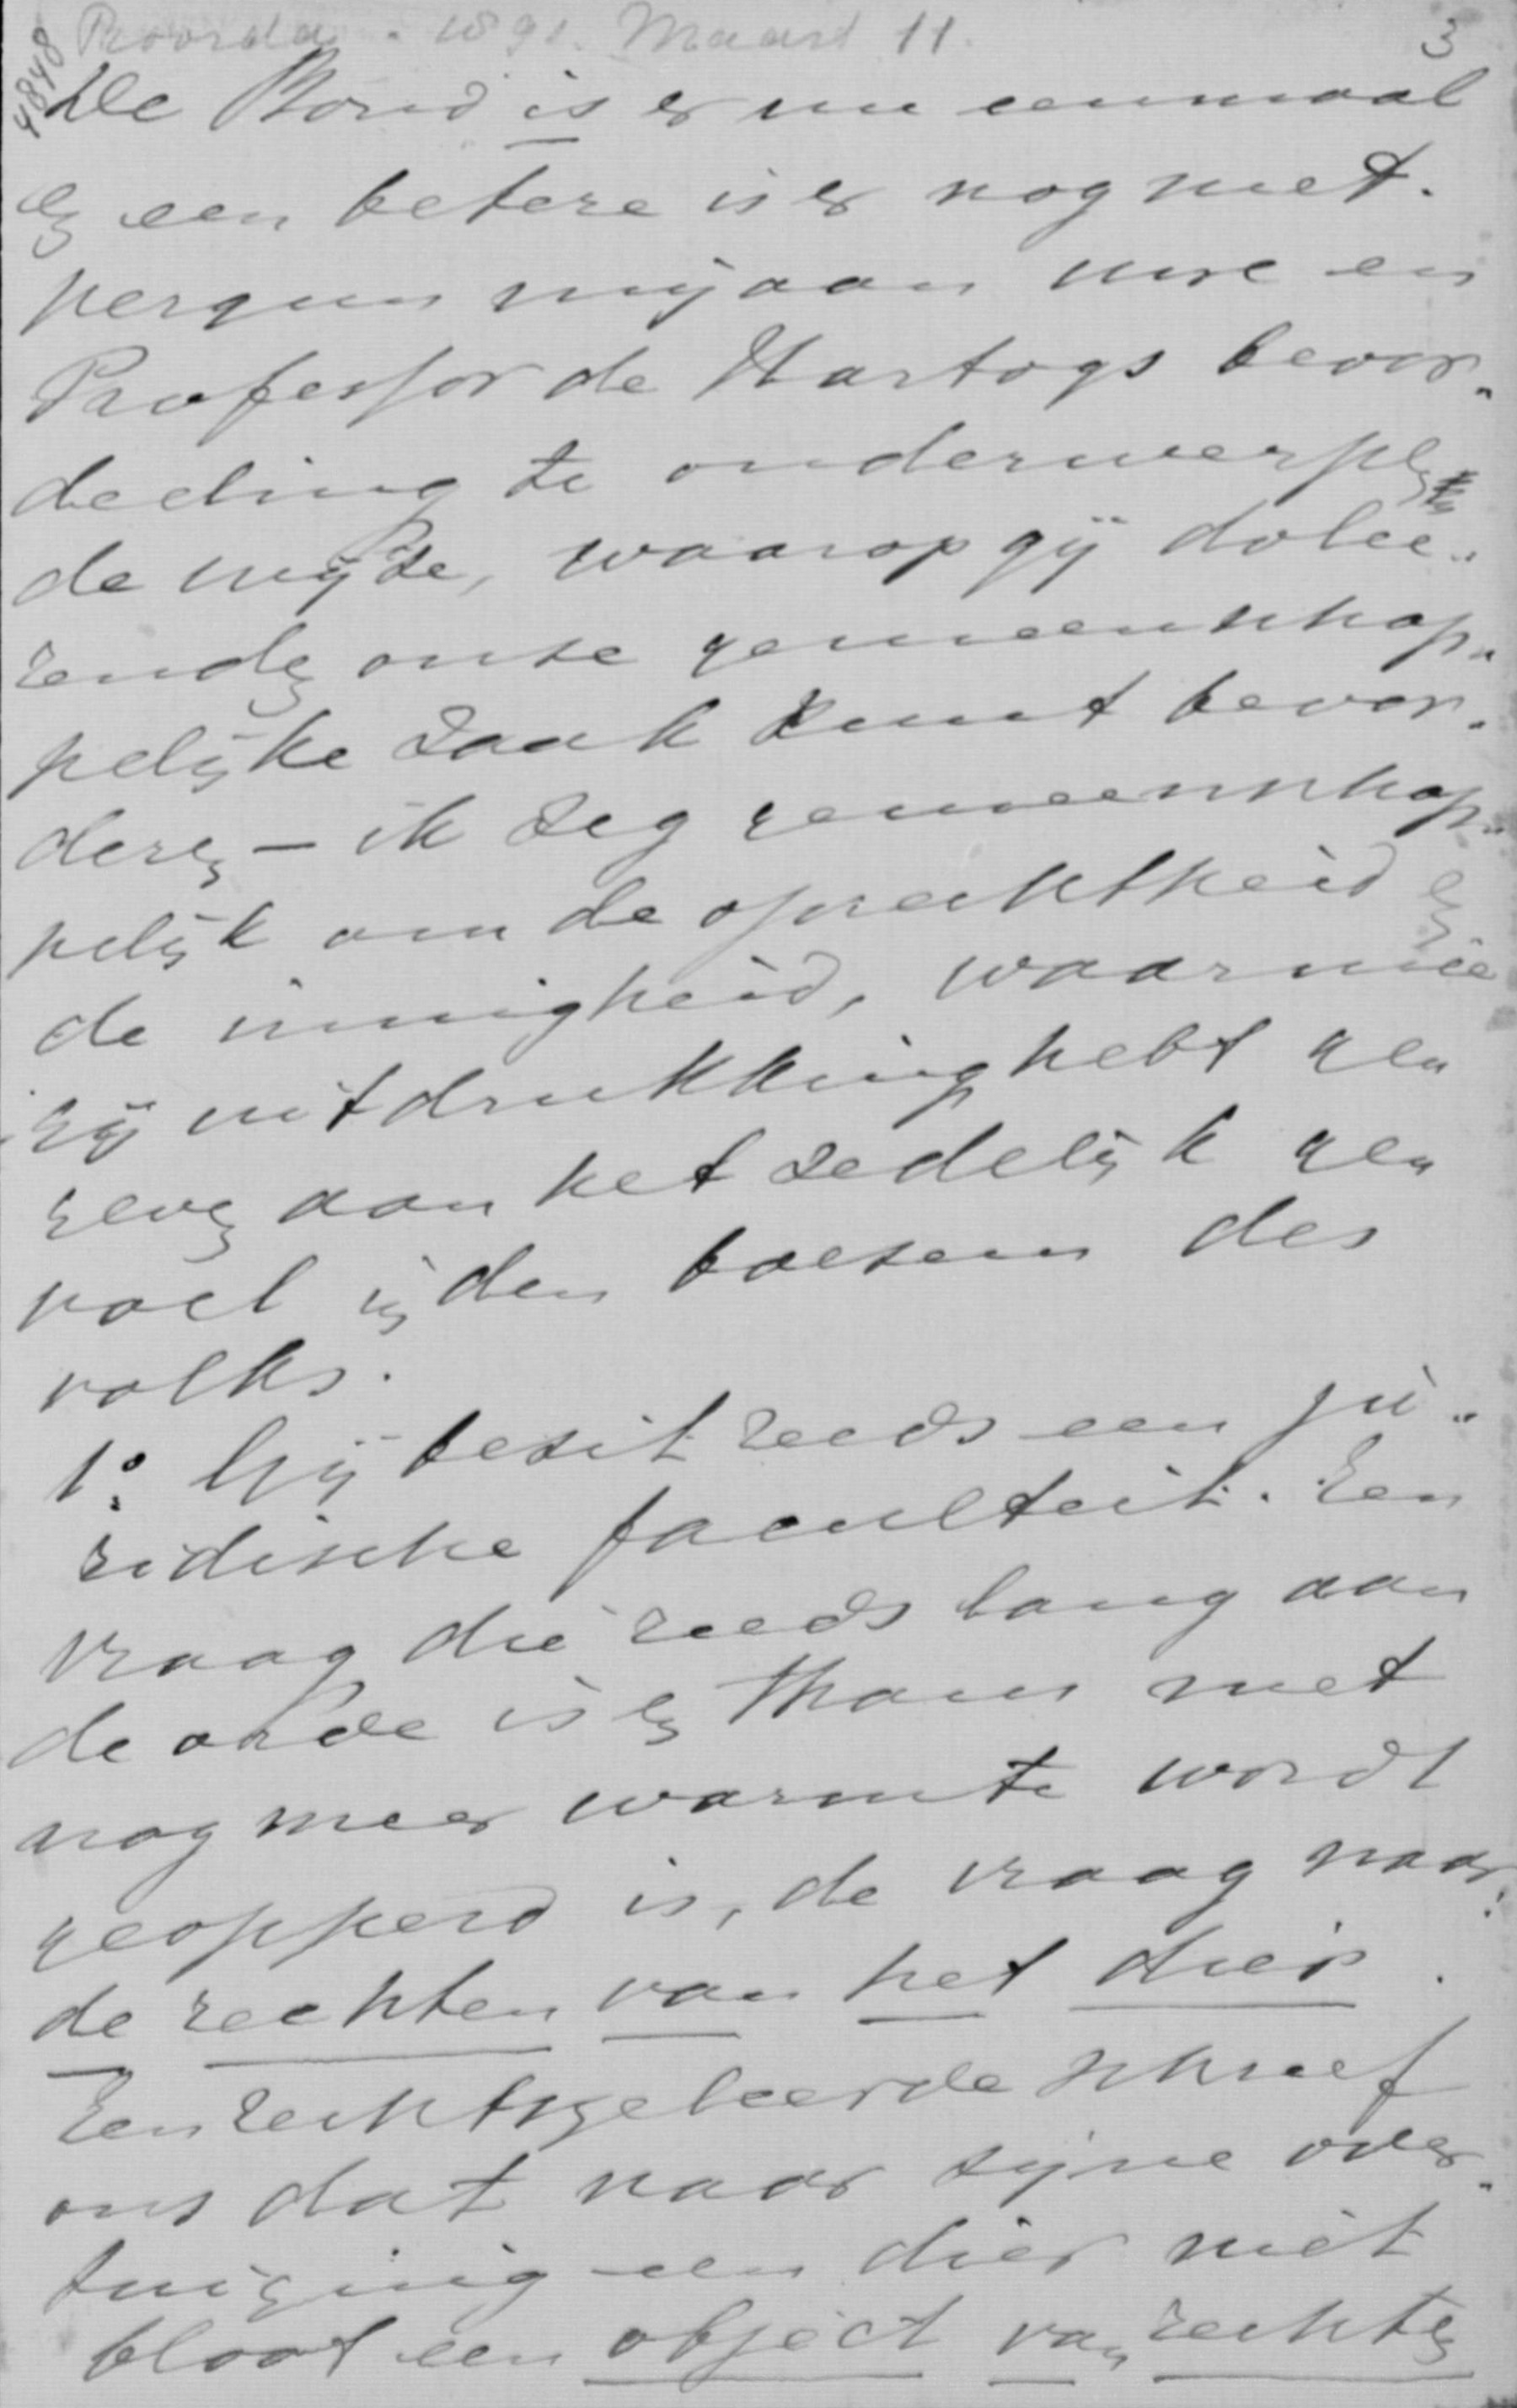 Roorda. 1891. Maart 11. 3
4848
De Bond is er nu eenmaal
en een betere is er nog niet.
Vergun mij aan uwe en
Professor de Hartogs beoor„
deeling te onderwerpen
de wijze, waarop gij dolee„
renden onze gemeenschap„
pelijke zaak kunt bevor„
deren – ik zeg gemeenschap„
pelijk om de oprechtheid en
de innigheid, waarmeê
gij uitdrukking hebt ge„
geven aan het zedelijk ge„
voel in den boesem des
volks.
1º. Gij bezit reeds een ju„
ridische faculteit. Een
vraag die reeds lang aan
de orde is en thans met
nog meer warmte wordt
geopperd is, de vraag naar
de rechten van het dier.
Een rechtsgeleerde schreef
ons dat naar zijne over„
tuiging een dier niet
bloot een object van rechten